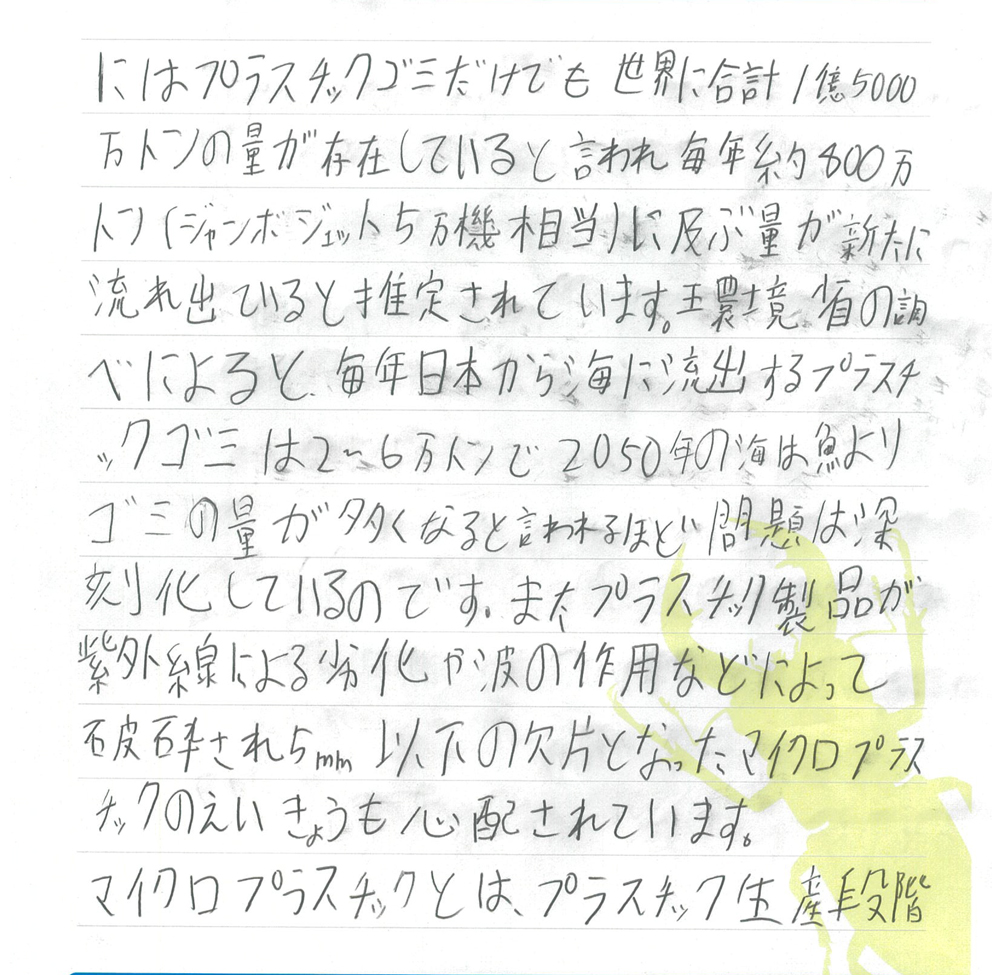 にはプラスチックゴミだけでも世界に合計1億5000
万トンの量が存在していると言われ毎年約800万
トン(ジャンボジェット5万機相当)に及ぶ量が新たに
流れ出ていると推定されています。環境省の調
べによると、毎年日本から海に流出するプラスチ
ックゴミは2~6万トンで2050年の海は魚より
ゴミの量が多くなると言われるほど問題は深
刻化しているのです。またプラスチック製品が
紫外線による劣化や波の作用などによって
破砕され5mm以下の欠片となったマイクロプラス
チックのえいきょうも心配されています。
マイクロプラスチックとは、プラスチック生産段階